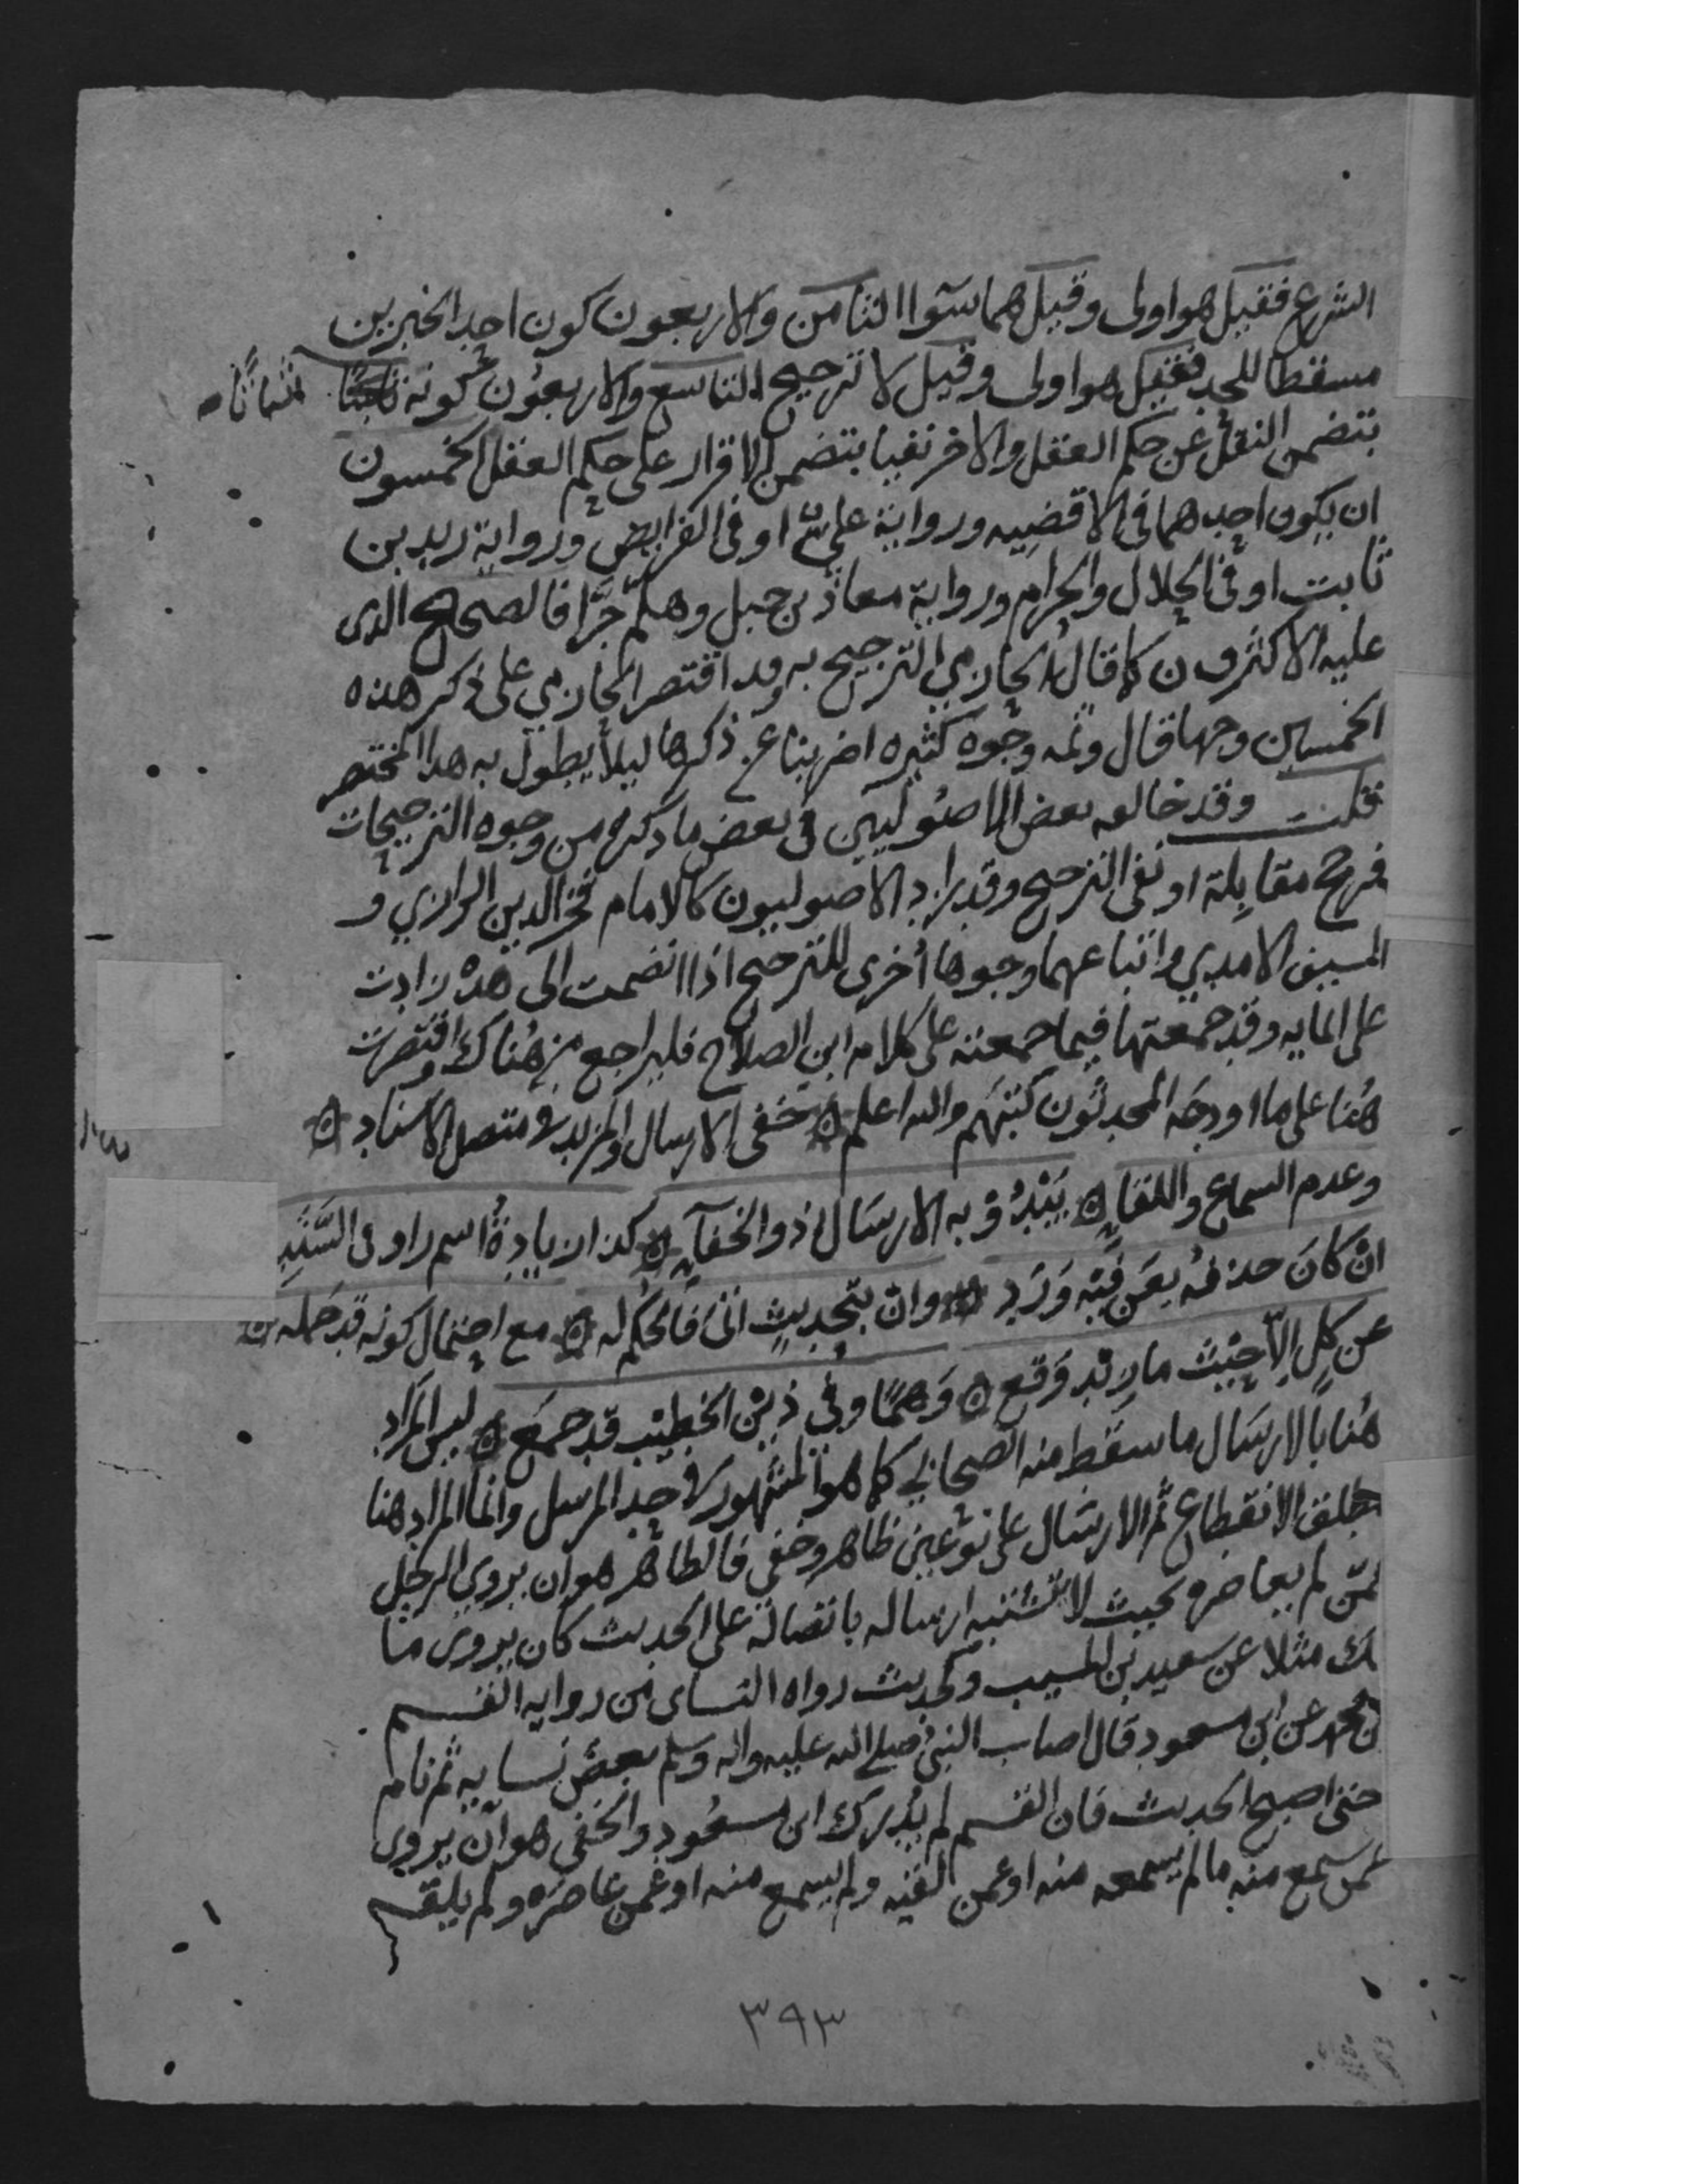 الشرع فقيل هو اولى وقيل هما سوا الثامن والاربعون كون احد الخبرين
مسقطا للحد فقيل هو اولى وقيل لا ترجيح التاسع والاربعون كونه اثباتا
يتضمن النقل عن حكم العقل والاخر نفيا يتضمن الاقرار على حكم العقل الخمسون
ان يكون احدهما في الاقضيه ورواية علي او في الفرايض ورواية زيد بن
ثابت او في الحلال والحرام ورواية معاذ بن جبل وهلم جرا فالصحيح الذي
عليه الاكثرون كما قال الحازمي الترجيح به وقد اقتصر الحازمي على ذكر هذه
الخمسين وجها قال وثمه وجوه كثيره اضربنا عن ذكرها ليلا يطول به هذا المختصر
قلت وقد خالفه بعض الاصوليين في بعض ما ذكره من وجوه الترجيحات
فرجح مقابلة او نفى الترجيح وقد زاد الاصوليون كالامام فخر الدين الرازي و
السيف الامدي واتباعهما وجوها أخرى للترجيح اذا انضمت الى هذه زادت
على المايه وقد جمعتها فيما جمعته على كلام ابن الصلاح فليراجع من هناك واقتصرت
هنا على ما اودعه المحدثون كتبهم والله اعلم خفي الارسال والمزيد في متصل الاسناد
وعدم السماع واللقاء يبدو به الارسال ذو الخفاء كذا زيادة اسم راو في السند
ان كان حذفه بعن فيه ورد وان بتحديث اتى فالحكم له مع احتمال كونه قد حمله
عن كل الا حيث ما زيد وقع وهما وفي ذين الخطيب قد جمع ليس المراد
هنا بالارسال ما سقط منه الصحابي كما هو المشهور في حد المرسل وانما المراد هنا
مطلق الانقطاع ثم الارسال على نوعين ظاهر وخفي فالظاهر هو ان يروي الرجل
عمن لم يعاصره بحيث لا يشتبه ارساله باتصاله على الحديث كان يروي ما
لك مثلا عن سعيد بن المسيب وكحديث رواه النساي من روايه القسم
بن محمد عن ابن مسعود قال اصاب النبي صلى الله عليه واله وسلم بعض نسايه ثم نام
حتى اصبح الحديث فان القسم لم يدرك ابن مسعود والخفي هو ان يروي
عمن سمع منه ما لم يسمعه منه او عمن لقيه ولم يسمع منه او عمن عاصره ولم يلقه
٣٩٣